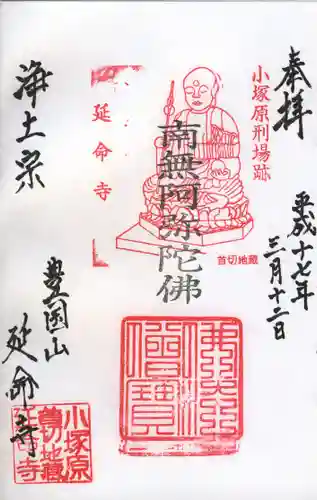 奉拝
平成十七年
三月十二日
小塚原刑場跡
首切地蔵
南無阿弥陀佛
延命寺
浄土宗
豊国山
延命寺
佛法
僧寳
小塚原
首切地蔵
延命寺